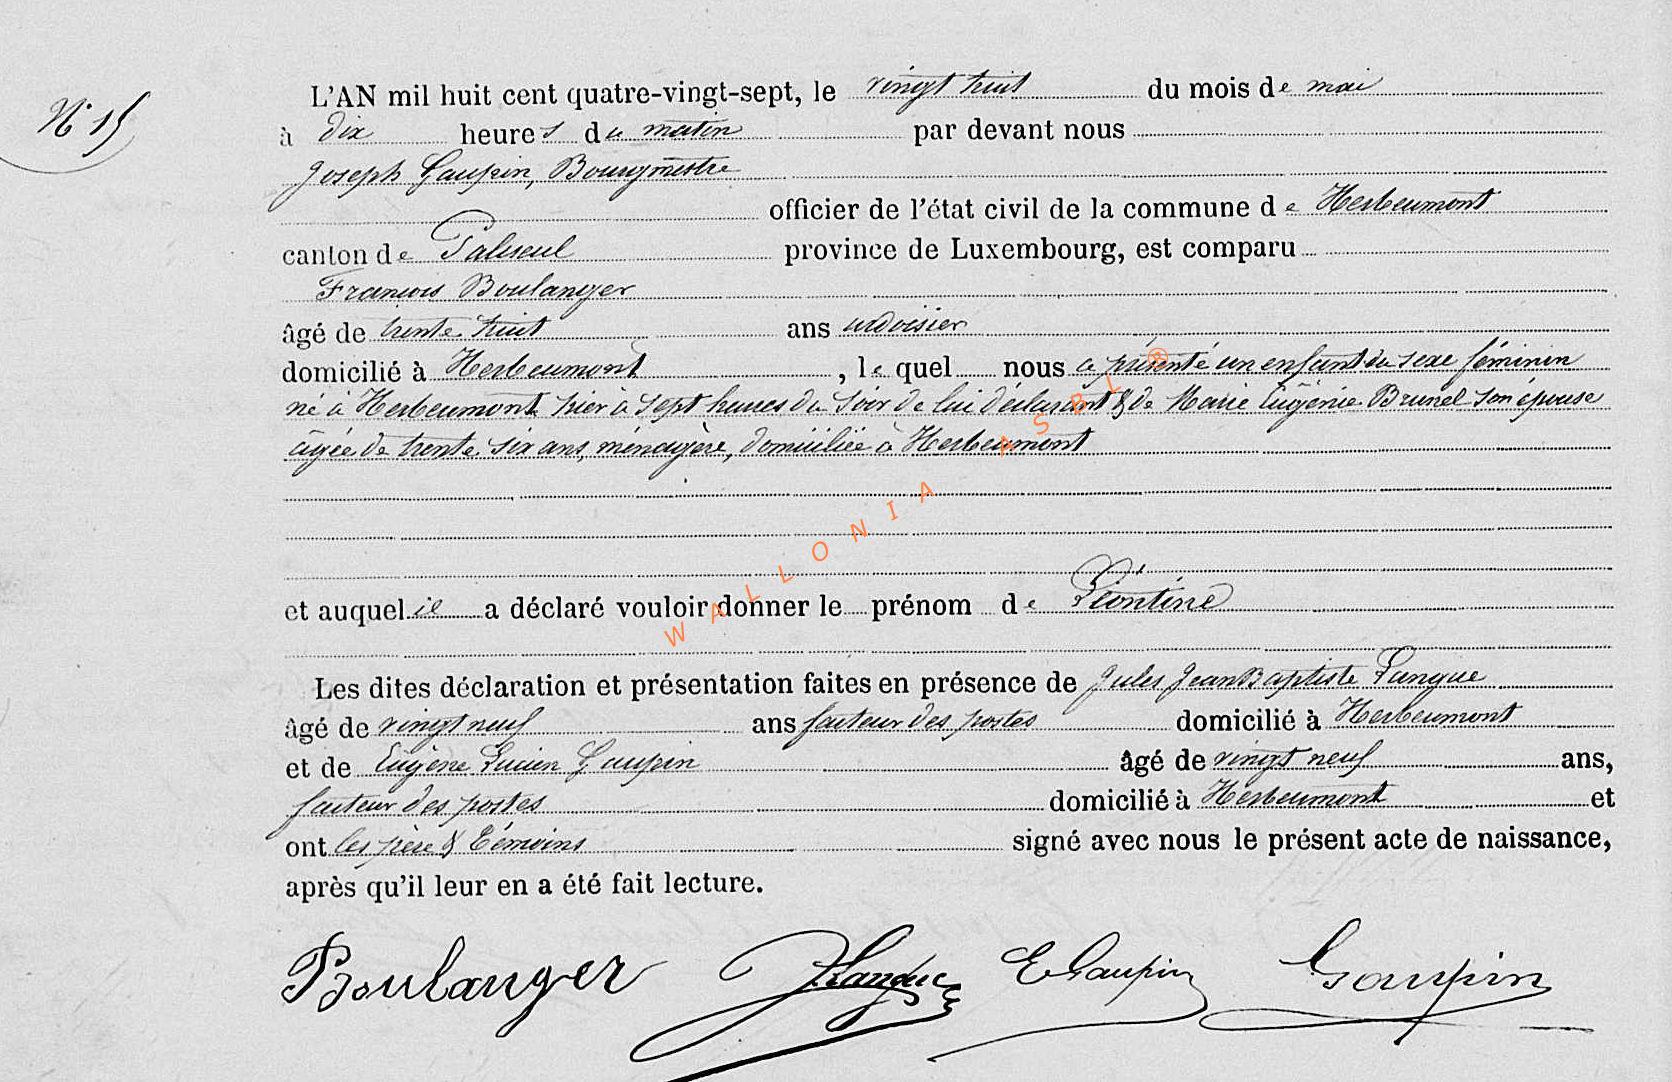 N° 15
L'AN mil huit cent quatre-vingt-sept, le vingt huit du mois de mai
à dix heures du matin par devant nous
Joseph Gaupin, Bourgmestre
officier de l'état civil de la commune de Herbeumont
canton de Paliseul province de Luxembourg, est comparu
François Boulanger
âgé de trente huit ans ardoisier
domicilié à Herbeumont, le quel nous a présenté un enfant du sexe féminin
né à Herbeumont hier à sept heures du soir de lui déclarant & de Marie Eugénie Brunel son épouse
âgée de trente six ans, ménagère, domiciliée à Herbeumont
et auquel il a déclaré vouloir donner le prénom de Léontine
Les dites déclaration et présentation faites en présence de Jules Jean Baptiste
âgé de vingt neuf ans facteur des postes domicilié à Herbeumont
et de Eugène Lucien Gaupin âgé de vingt neuf ans,
facteur des postes domicilié à Herbeumont et
ont les père & témoins signé avec nous le présent acte de naissance,
après qu'il leur en a été fait lecture.
Boulanger E Gaupin Gaupin
WALLONIA ASBL ®